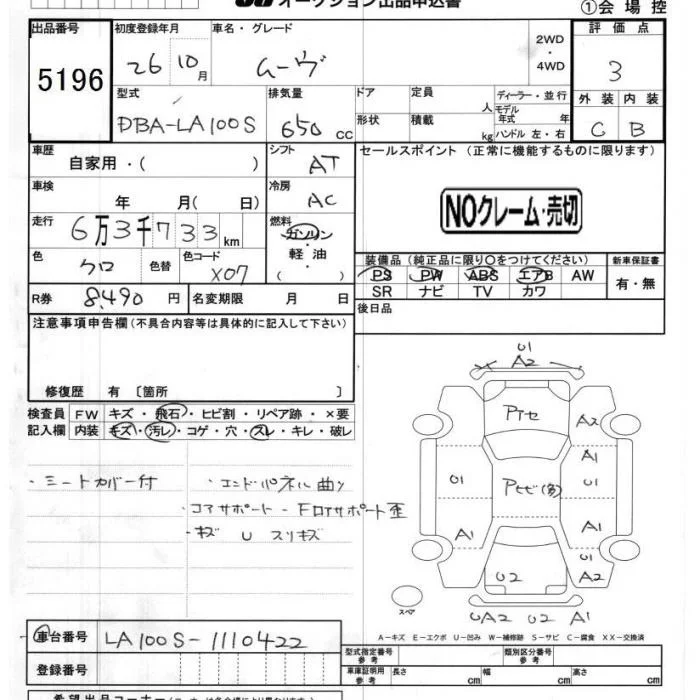 オークション出品申込書
①会場控
出品番号 初度登録年月 車名・グレード 2WD・4WD 評価点
5196 26 10月 ムーヴ 3
型式 排気量 ドア 定員 人 ディーラー・並行 外装 内装
DBA-LA100S 650 CC 形状 積載 kg モデル年式 年 ハンドル 左・右 C B
車歴 自家用・( ) シフト AT セールスポイント (正常に機能するものに限ります)
車検 年 月( 日) 冷房 AC NOクレーム・売切
走行 6万3千733km 燃料 ガソリン 軽油 ( )
色 クロ 色替 色コード X07
装備品 (純正品に限り○をつけてください) 新車保証書
PS PW ABS エアB AW 有・無
SR ナビ TV カワ
R券 8,490 円 名変期限 月 日 後日品
注意事項申告欄(不具合内容等は具体的に記入して下さい)
修復歴 有 〔箇所 〕
検査員記入欄 FW キズ・飛石・ヒビ割・リペア跡・×要
内装 キズ・汚レ・コゲ・穴・スレ・キレ・破レ
・シートカバー付 ・エンドパネル曲り
・コアサポート-Fロアサポート歪
・キズ U スリキズ
U1
A2
Pアセ A2
A1
U1 Pヒビ(多) U1
A1 A1
U2 A2
スペア UA2 U2 A1
A-キズ E-エクボ U-凹み W-補修跡 S-サビ C-腐食 XX-交換済
車台番号 LA100S-1110422
型式指定番号 参考 類別区分番号 参考
登録番号 車庫証明用 参考 長さ cm 幅 cm 高さ cm
希望出品コーナー